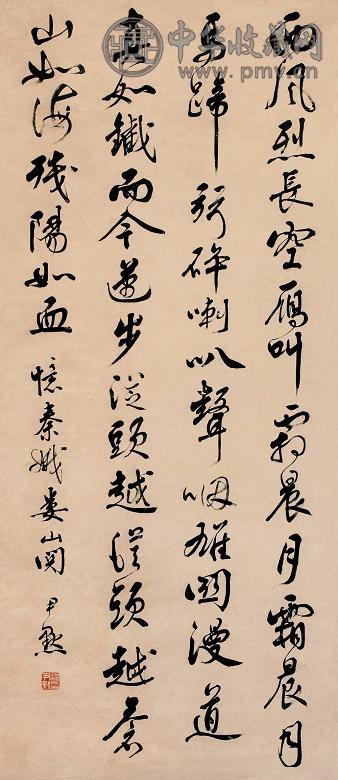 中华收藏网
www.pmv.cn
西風烈長空鴈叫霜晨月霜晨月
馬蹄聲碎喇叭聲咽雄關漫道
真如鐵而今邁步從頭越從頭越蒼
山如海殘陽如血 憶秦娥婁山関 尹默